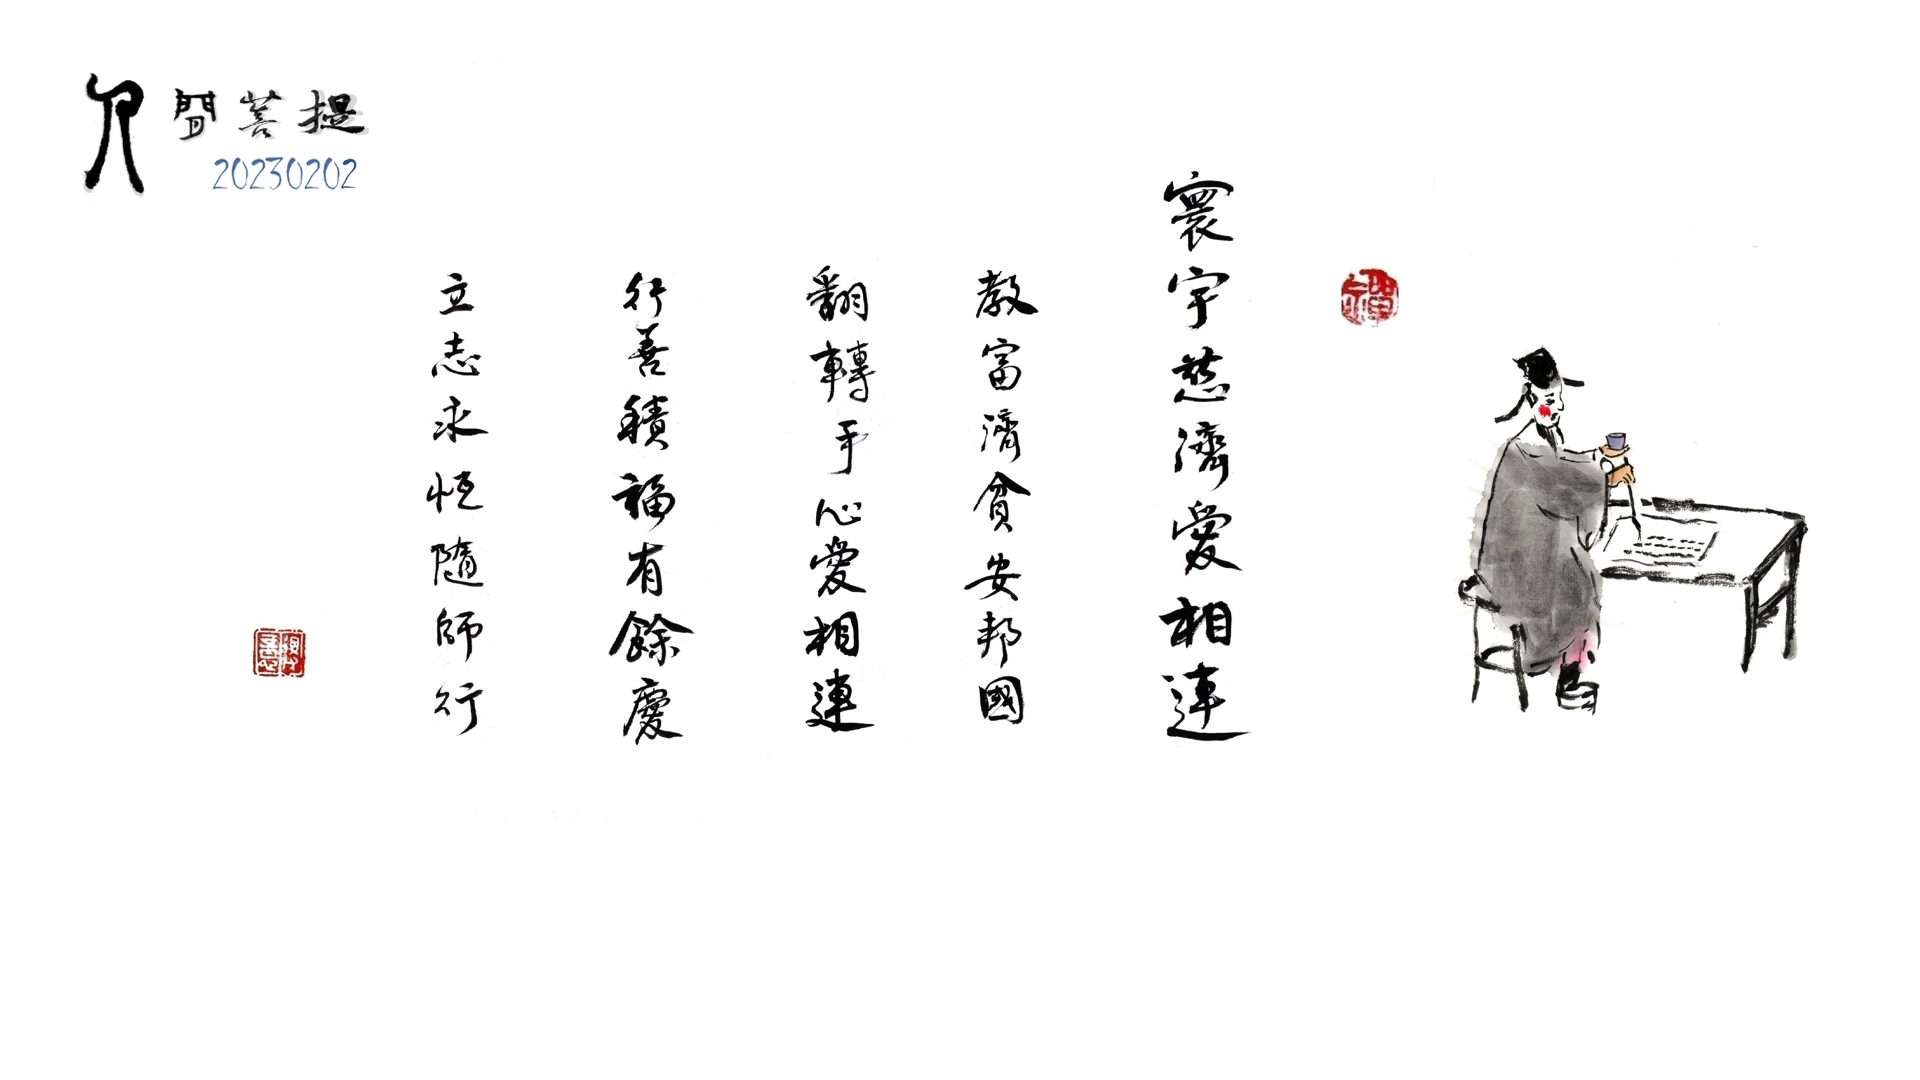 人間菩提
20230202
寰宇慈濟愛相連
教富濟貧安邦國
翻轉手心愛相連
行善積福有餘慶
立志永恆隨師行
禪